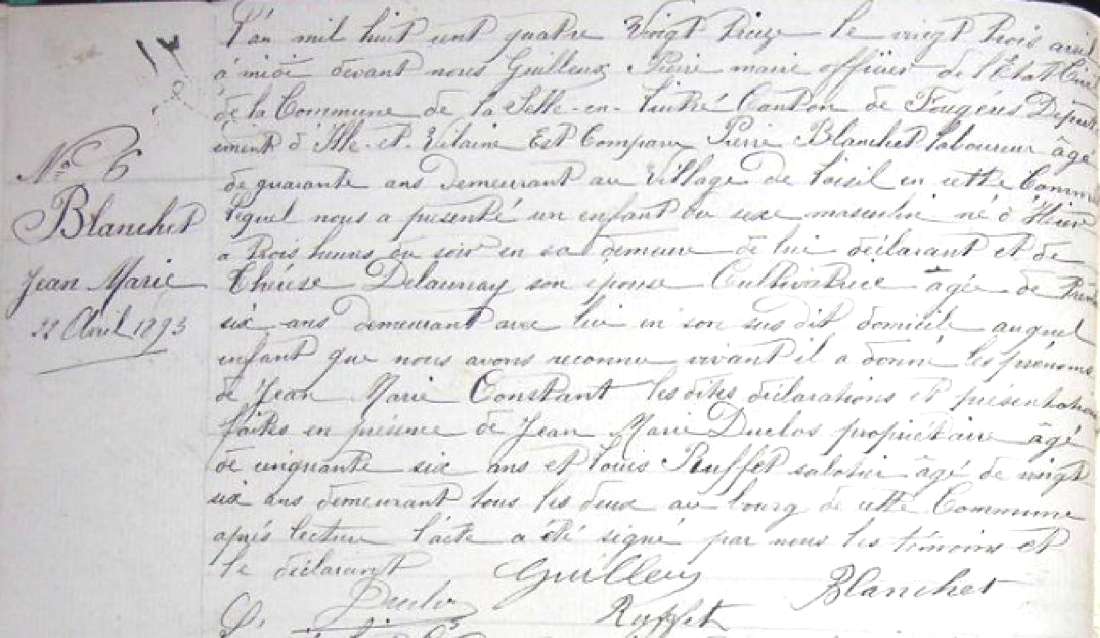 L'an mil huit cent quatre vingt treize le vingt trois avril
à midi devant nous Guilleux Pierre maire officier de l'Etat Civil
de la Commune de la Selle-en-Luitré Canton de Fougères Départ
ement d'Ille-et-Vilaine Est Comparu Pierre Blanchet laboureur âgé
No 6
de quarante ans demeurant au Village de Loisil en cette Commune
Blanchet
lequel nous a présenté un enfant du sexe masculin né d'Hier
à trois heures du soir en sa demeure de lui déclarant et de
Jean Marie
Thérèse Delaunay son épouse Cultivatrice âgée de Trente
22 Avril 1893
six ans demeurant avec lui en son sus dit domicile auquel
enfant que nous avons reconnu vivant il a donné les prénoms
de Jean Marie Constant les dites déclarations et présentation
faites en présence de Jean Marie Duclos propriétaire âgé
de cinquante six ans et Louis Ruffet sabotier âgé de vingt
six ans demeurant tous les deux au bourg de cette Commune
après lecture l'acte a été signé par nous les témoins et
le déclarant Guilleux Blanchet
Duclos Ruffet